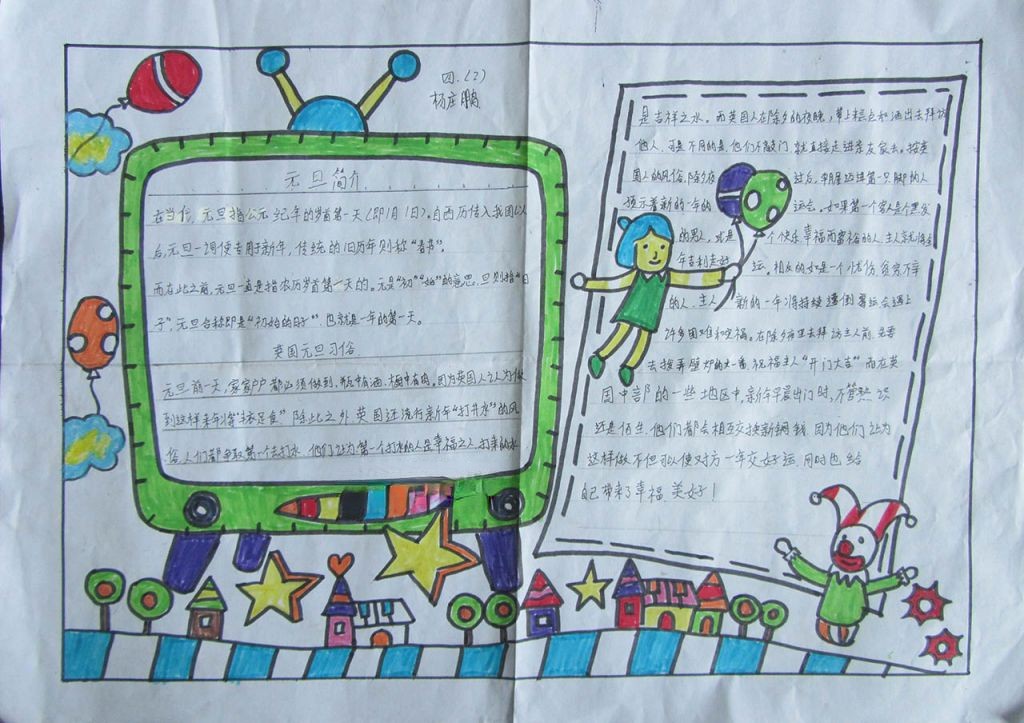 四.(2)
杨庄鹏
元旦简介
在当代,元旦指公元纪年的岁首第一天(即1月1日)。自西历传入我国以
后,元旦一词便专用于新年,传统的旧历年则称“春节”。
而在此之前,元旦一直是指农历岁首第一天的。元是“初”“始”的意思,旦则指“日
子”,元旦合称即是“初始的日子”,也就是一年的第一天。
英国元旦习俗
元旦前一天,家家户户都必须做到瓶中有酒,橱中有肉。因为英国人认为做
到这样来年将“衣足食”除此之外英国还流行新年“打井水”的风
俗,人们都争取第一个去打水,他们认为第一个打水的人是幸福之人,打来的水
是吉祥之水。而英国人在除夕的夜晚,带上糕点和酒出去拜访
他人,可是不同的是,他们不敲门就直接走进亲友家去。按英
国人的风俗,除夕夜过后,朝屋迈进第一只脚的人
预示着新的一年的运会。如果第一个客人是个黑发
的男人,或是个快乐幸福而富裕的人,主人就将全
年吉利走好运。相反的如是一个忧伤贫穷不幸
的人,主人新的一年将持续遭倒霉运会遇上
许多困难和灾祸。在除夕夜里去拜访主人前,先要
去拨弄壁炉的火,祝福主人“开门大吉”而在英
国中部的一些地区中,新年早晨出门时,不管熟识
还是陌生,他们都会相互交换新铜钱,因为他们认为
这样做不但可以使对方一年交好运,同时也给
自己带来了幸福,美好!